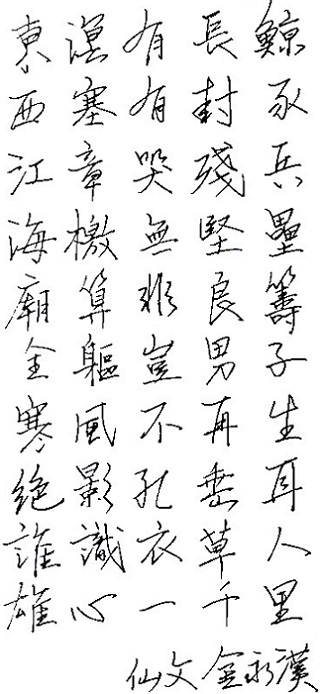 東溟有長鯨
西塞有封豕
江章哭殘兵
海檄無堅壘
廟算良籌
全軀豈男子
寒風不再生
絕影孔垂耳
誰識衣草人
雄心一千里
仙文 金永漢